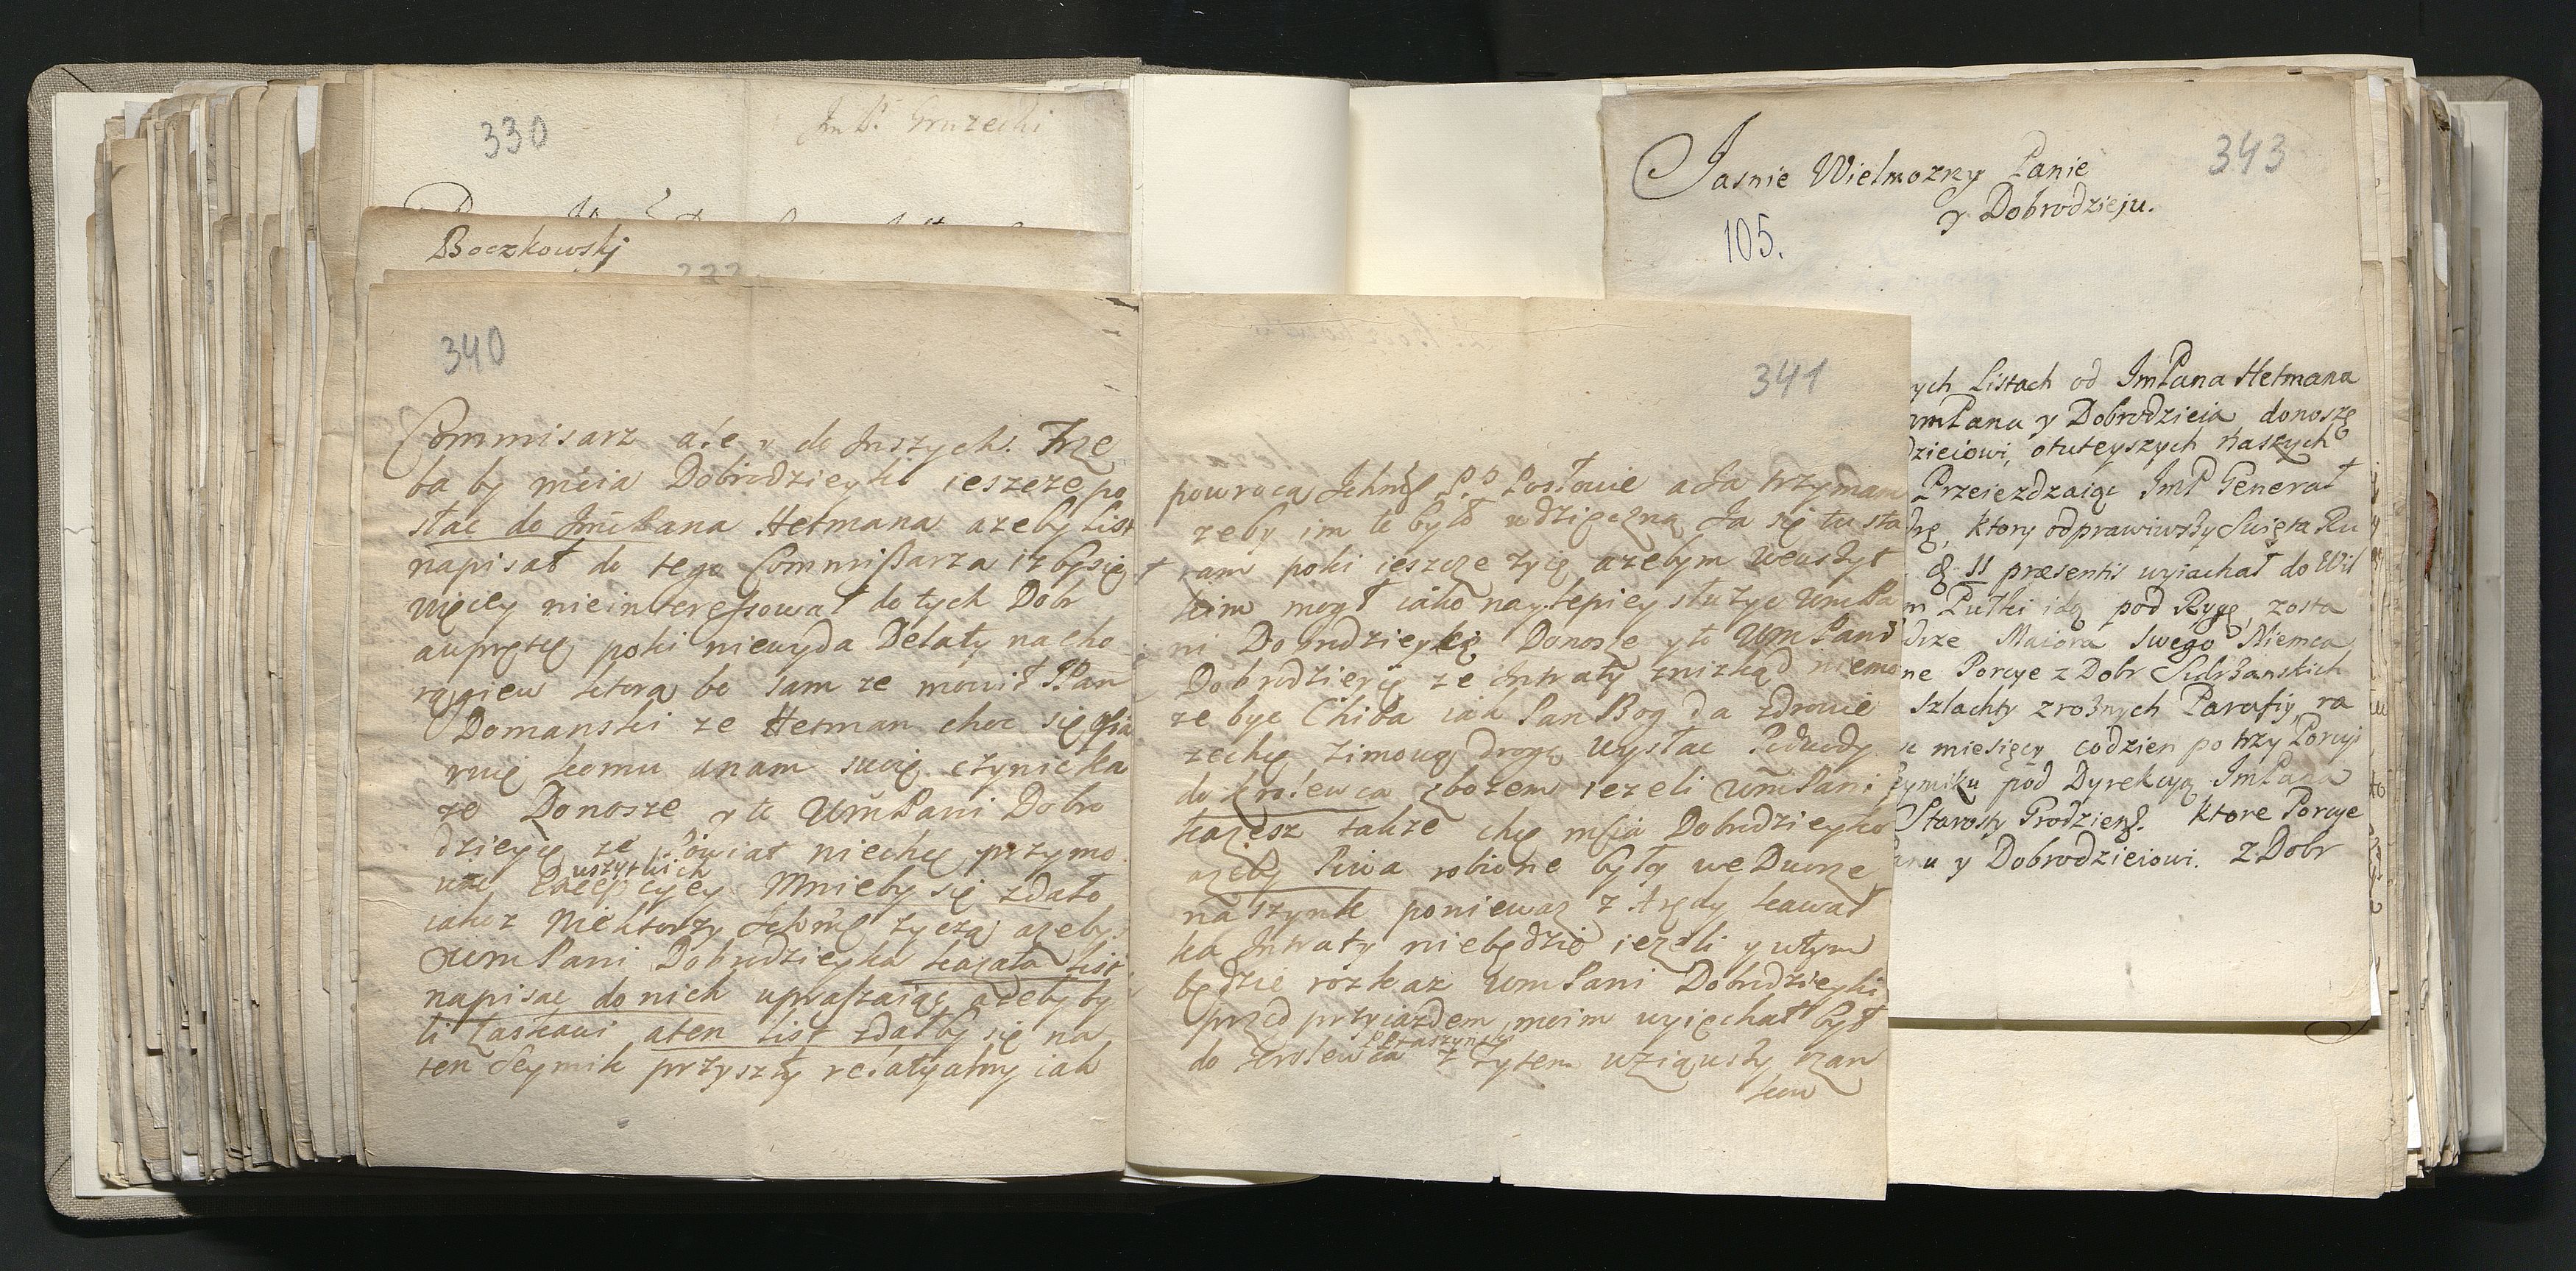 330
Jm P. Gruzecki
Boczkowskj
340
Commisarz ale y do Inszych. Trze
ba by mcia Dobrodzieyko ieszcze po
słac do Jmc Pana Hetmana azeby List
napisał do tego Commissarza izby się
więcey nie interessował do tych Dobr
poki niewyda Delaty na cho
rągiew ktora bo sam ze mowił P. Pan
Domanski ze Hetman chce się
komu anam swię czynic ka
ze Donosze y to WmPani Dobro
dzieyce ze Powiat niechce przymo
wac wszytkich Mnieby się zdało
iakoz Niektorzy Ichmc zyczą azeby
WmPani Dobrodzieyka kazała List
napisac do nich upraszaiąc azeby by
li Łaskawi aten List zdałby się na
ten Seymik przyszły relatyalny iak
341
powrocą Ichmc P.P. Posłowie a Ja trzymam
zeby im to było wdzięczną Ja się tu sta
ram poki ieszcze zyię azebym weszłył
kim mogł iako naylepiey słuzyc WmPa
ni Dobrodzieyki Donosze y to WmPani
Dobrodzieyce ze Intraty znizkąd niemo
ze byc Chiba iak Pan Bog da zdrowie
zechcę zimową drogą wysłac Podwody
do Krolewca zbozem iezeli WmPani
kazesz takze chcę mscia Dobrodzieyko
azeby Piwa robione były we Dworze
na szynk poniewaz z Arędy kawał
ka Intraty niebędzie iezeli y wtym
będzie rozkaz WmPani Dobrodzieyki
przed przyiazdem moim wyiechał był
do Krolewca z zytem wziąwszy czan
kow
343
Jasnie Wielmozny Panie
y Dobrodzieju.
105.
ych Listach od JmPana Hetmana
mPana y Dobrodzieia donoszę
dzieiowi, otuteyszych naszych
Przeiezdzaiąc JmP Generał
drę, ktory odprawiwszy Swięta Ru
d 11 præsentis wyiachał do Wil
m Pułki idą pod Rygę, zosta
drze Maiora Swego Niemca
ne Porcye z Dobr
Szlachty zroznych Parafiy, ra
miesięcy codzien po trzy Porcyi
eymiku pod Dyrekcyą JmPana
Starosty Grodzien. Ktore Porcye
anu y Dobrodzieiowi. z Dobr